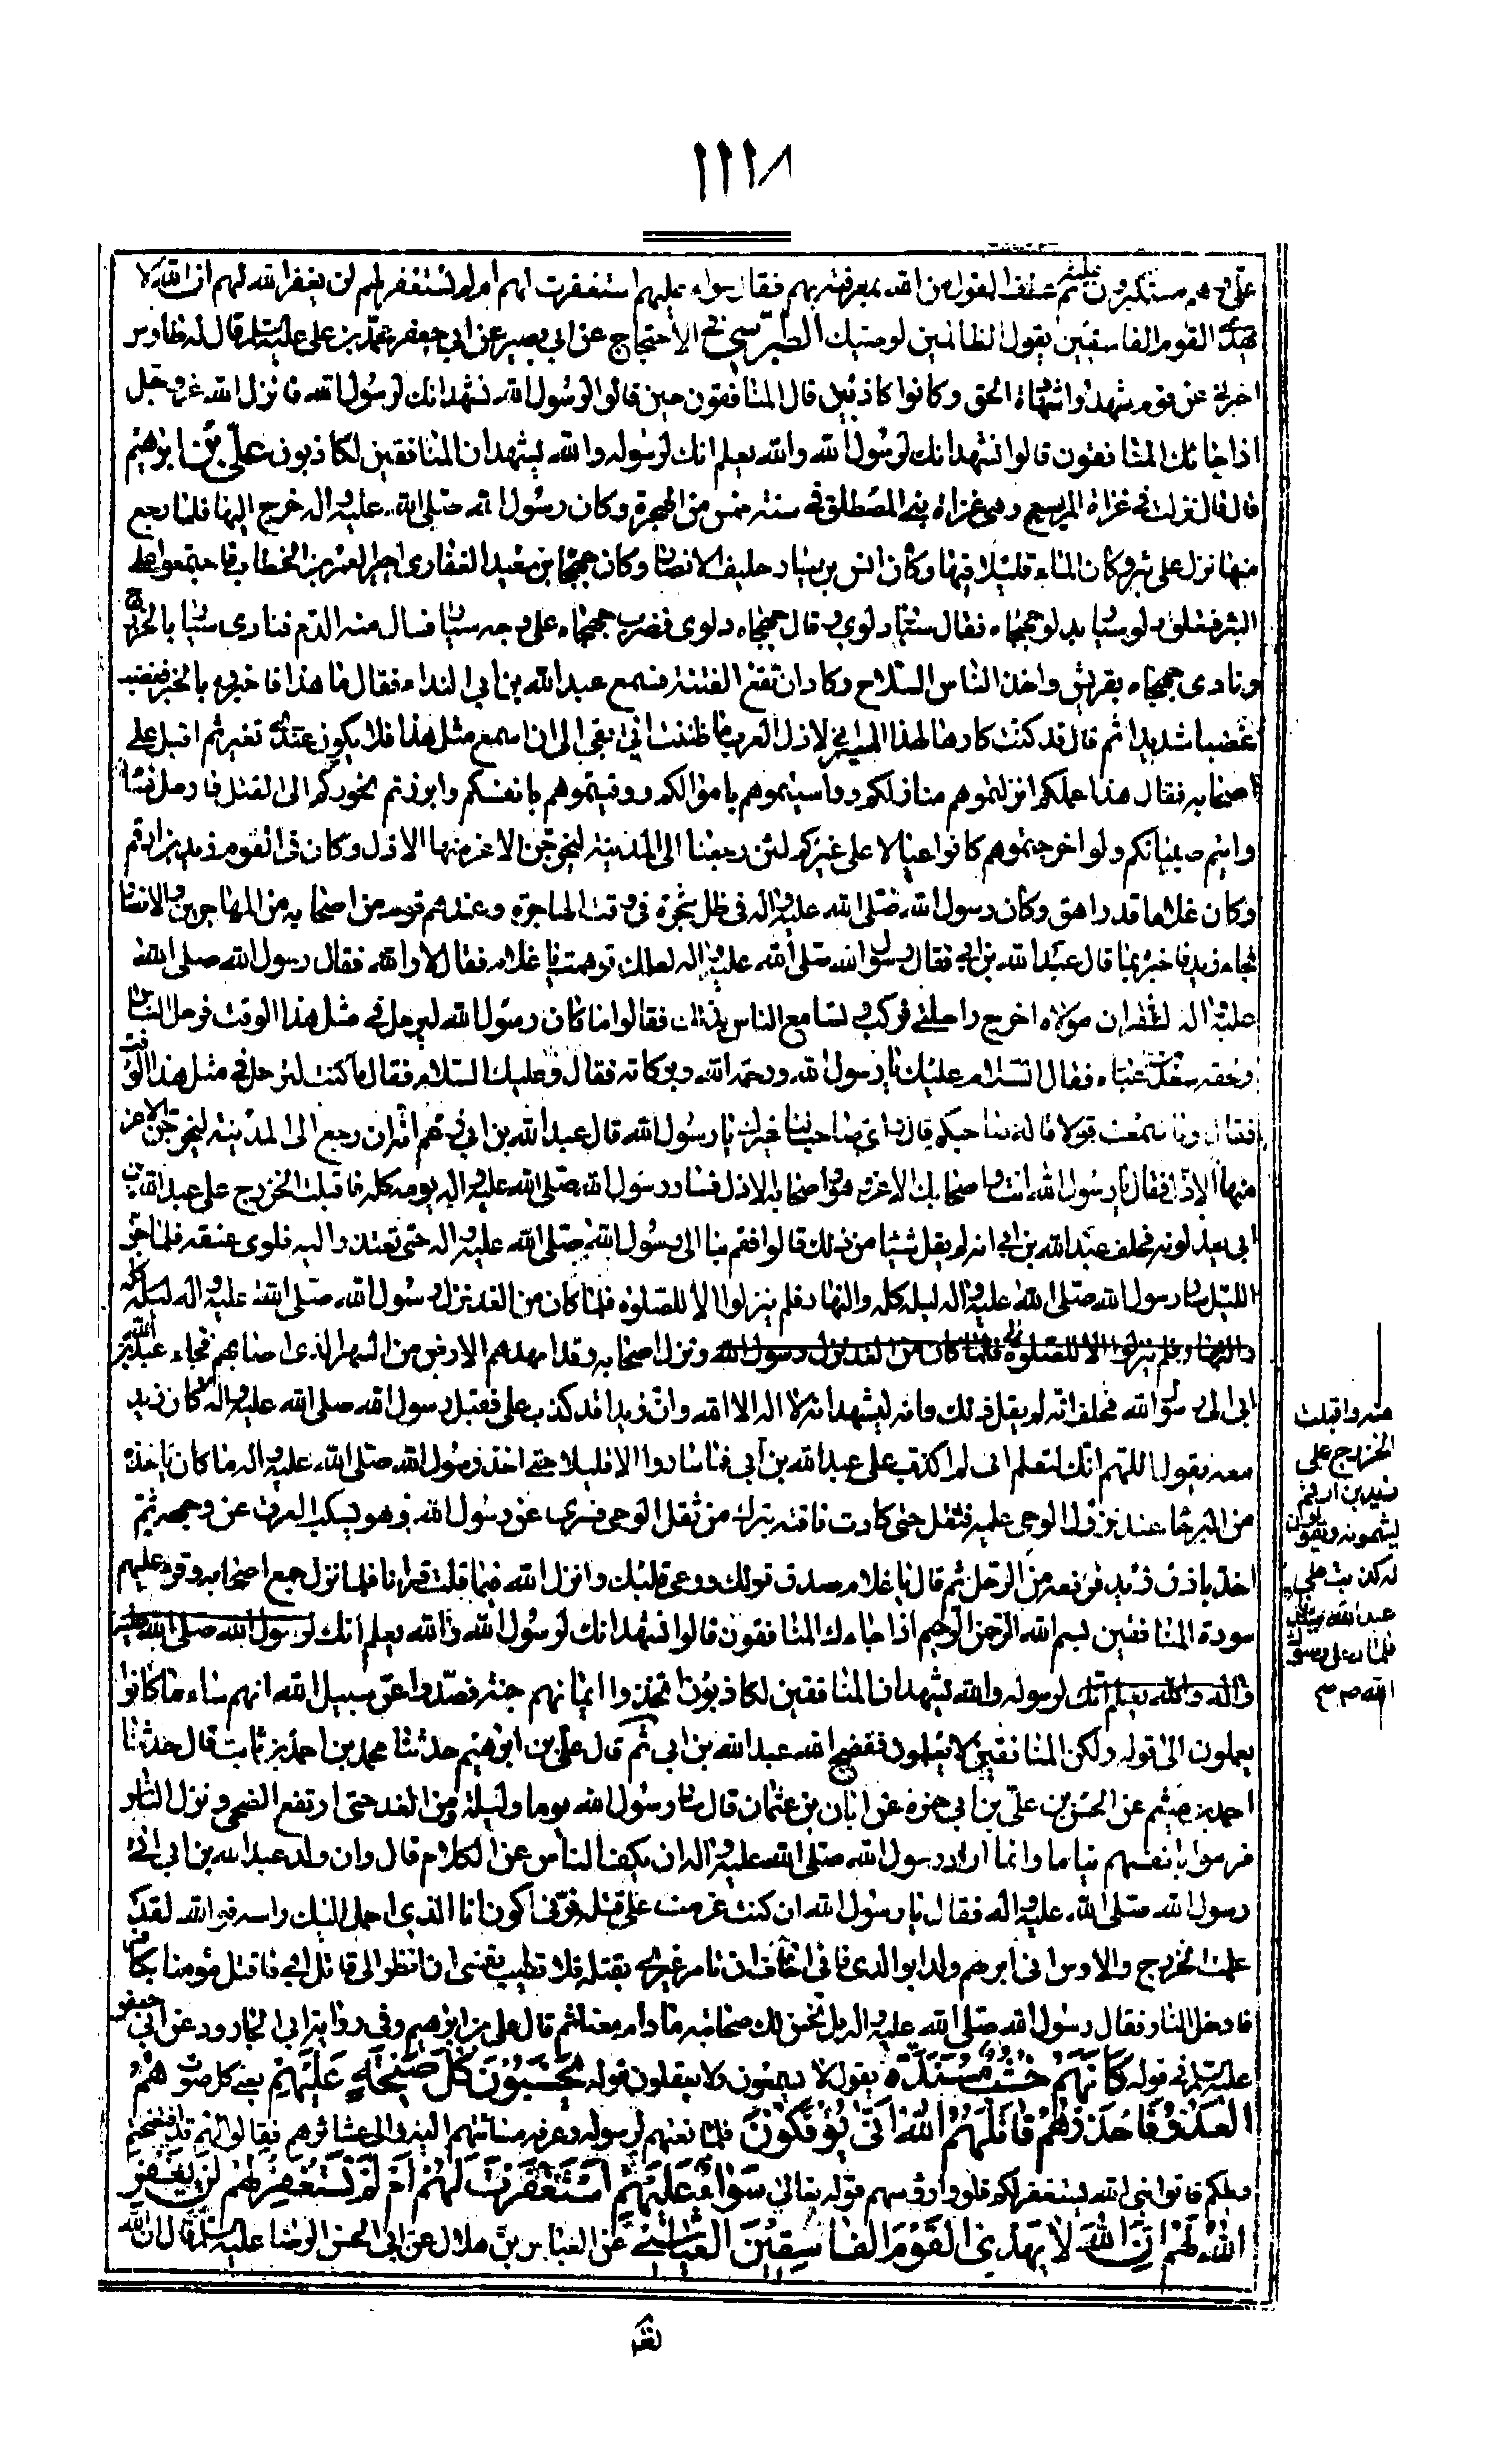 ١١١٨
علي وهم مستكبرون عليه ثم عطف القول من الله بمعرفته بهم فقال سواء عليهم استغفرت لهم ام لم تستغفر لهم لن يغفر الله لهم ان الله لا
يهدي القوم الفاسقين يقول الظالمين لوصيتك الطبرسي في الاحتجاج عن ابي بصير عن ابي جعفر محمد بن علي عليه السلم قال له طاوس
اخبرني عن قوم شهدوا شهادة الحق وكانوا كاذبين قال المنافقون حين قالوا لرسول الله نشهد انك لرسول الله فانزل الله عز وجل
اذا جائك المنافقون قالوا نشهد انك لرسول الله والله يعلم انك لرسوله والله يشهد ان المنافقين لكاذبون علي بن ابرهيم
قال قال نزلت في غزاة المريسيع وهي غزاة بني المصطلق في سنة خمس من الهجرة وكان رسول الله صلى الله عليه واله خرج اليها فلما رجع
منها نزل على بئر وكان الماء قليلا فيها وكان انس بن سيار حليف الانصار وكان جهجاه بن سعيد الغفاري اجيرا لعمر بن الخطاب فاجتمعوا على
البئر فتعلق دلو سيار بدلو جهجاه فقال سيار دلوي وقال جهجاه دلوي فضرب جهجاه على وجه سيار فسال منه الدم فنادى سيار بالخزرج
ونادى جهجاه بقريش واخذ الناس السلاح وكاد ان تقع الفتنة فسمع عبد الله بن ابي النداء فقال ما هذا فاخبروه بالخبر فغضب
غضبا شديدا ثم قال قد كنت كارها لهذا المسير اني لاذل العرب ما ظننت اني ابقى الى ان اسمع مثل هذا فلا يكون عندي تغير ثم اقبل على
اصحابه فقال هذا عملكم انزلتموهم منازلكم وواسيتموهم باموالكم ووقيتموهم بانفسكم وابرزتم نحوركم الى القتل فارمل نساءكم
وايتم صبيانكم ولو اخرجتموهم كانوا عيالا على غيركم لئن رجعنا الى المدينة ليخرجن الاعز منها الاذل وكان في القوم زيد بن ارقم
وكان غلاما قد راهق وكان رسول الله صلى الله عليه واله في ظل شجرة في وقت الهاجرة وعنده قوم من اصحابه من المهاجرين والانصار
فجاء زيد فاخبره بما قال عبد الله بن ابي فقال رسول الله صلى الله عليه واله لعلك وهمت يا غلام فقال لا والله فقال رسول الله صلى الله
عليه واله لشقران مولاه اخرج راحلتي فركب وتسامع الناس بذلك فقالوا ما كان رسول الله ليرحل في مثل هذا الوقت فرحل الناس
ولحقه سعد بن عبادة فقال السلام عليك يا رسول الله ورحمة الله وبركاته فقال وعليك السلام فقال ما كنت لترحل في مثل هذا الوقت
فقال وما سمعت قولا قاله صاحبكم قال واي صاحب لنا غيرك يا رسول الله قال عبد الله بن ابي زعم انه ان رجع الى المدينة ليخرجن الاعز
منها الاذل فقال يا رسول الله انت واصحابك الاعز وهو واصحابه الاذل فسار رسول الله صلى الله عليه واله يومه كله فاقبلت الخزرج على عبد الله بن
ابي يعذلونه فحلف عبد الله بن ابي انه لم يقل شيئا من ذلك قالوا فقم بنا الى رسول الله صلى الله عليه واله حتى تعتذر اليه فلوى عنقه فلما جن
الليل سار رسول الله صلى الله عليه واله ليله كله والنهار فلم ينزلوا الا للصلوة فلما كان من الغد نزل رسول الله صلى الله عليه واله ليله كله
والنهار فلم ينزلوا الا للصلوة فلما كان من الغد نزل رسول الله ونزل اصحابه وقد امهدهم الارض من السهر الذي اصابهم فجاء عبد الله بن
ابي الى رسول الله فحلف انه لم يقل ذلك وانه ليشهد انه لا اله الا الله وان زيدا قد كذب علي فقبل رسول الله صلى الله عليه واله كان زيد
معه يقول اللهم انك لتعلم اني لم اكذب على عبد الله بن ابي فما ساروا الا قليلا حتى اخذ رسول الله صلى الله عليه واله ما كان ياخذه
من البرحاء عند نزول الوحي عليه فثقل حتى كادت ناقته تبرك من ثقل الوحي فسري عن رسول الله وهو يسكب العرق عن وجهه ثم
اخذ باذن زيد فرفعه من الرحل ثم قال يا غلام صدق قولك ووعى قلبك وانزل الله فيما قلت قرانا فلما نزل جمع اصحابه وقرء عليهم
سورة المنافقين بسم الله الرحمن الرحيم اذا جاءك المنافقون قالوا نشهد انك لرسول الله والله يعلم انك لرسول الله صلى الله عليه
واله والله يعلم انك لرسوله والله يشهد ان المنافقين لكاذبون اتخذوا ايمانهم جنة فصدوا عن سبيل الله انهم ساء ما كانوا
يعملون الى قوله ولكن المنافقين لا يعلمون ففضح الله عبد الله بن ابي ثم قال علي بن ابرهيم حدثنا محمد بن احمد بن ثابت قال حدثنا
احمد بن ميثم عن الحسن بن علي بن ابي حمزة عن ابان بن عثمان قال سار رسول الله يوما وليلة ومن الغد حتى ارتفع الضحى ونزل الناس
فرموا بانفسهم نياما وانما اراد رسول الله صلى الله عليه واله ان يكف الناس عن الكلام قال وان ولد عبد الله بن ابي اتى
رسول الله صلى الله عليه واله فقال يا رسول الله ان كنت عزمت على قتله فمرني اكون انا الذي احمل اليك راسه فوالله لقد
علمت الخزرج والاوس اني ابرهم ولدا بوالدي فاني اخاف ان تامر غيري بقتله فلا تطيب نفسي ان انظر الى قاتل ابي فاقتل مؤمنا بكافر
فادخل النار فقال رسول الله صلى الله عليه واله بل تحسن لك صحابته ما دام معنا ثم قال علي بن ابرهيم وفي رواية ابي الجارود عن ابي جعفر
عليه السلم في قوله كَاَنَّهُمْ خُشُبٌ مُسَنَّدَةٌ يقول لا يسمعون ولا يعقلون قوله يَحْسَبُونَ كُلَّ صَيْحَةٍ عَلَيْهِمْ يعني كل صوت هُمُ
الْعَدُوُّ فَاحْذَرْهُمْ قَاتَلَهُمُ اللّٰهُ اَنّٰى يُؤْفَكُونَ فلما نعتهم لرسوله وعرفه مسائتهم اليه والى عشائرهم فقالوا لهم قد افتضحتم
ويلكم فاتوا نبي الله يستغفر لكم فلووا رؤسهم قوله تعالى سَوَاءٌ عَلَيْهِمْ اَسْتَغْفَرْتَ لَهُمْ اَمْ لَمْ تَسْتَغْفِرْ لَهُمْ لَنْ يَغْفِرَ
اللّٰهُ لَهُمْ اِنَّ اللّٰهَ لا يَهْدِي الْقَوْمَ الْفَاسِقِينَ العياشي عن العباس بن هلال عن ابي الحسن الرضا عليه السلم قال ان الله
لقد
منه واقبلت
الخزرج على
زيد بن ارقم
يشتمونه ويقولون
له كذبت على
عبد الله سيدنا
فلما رحل رسول
الله ص م